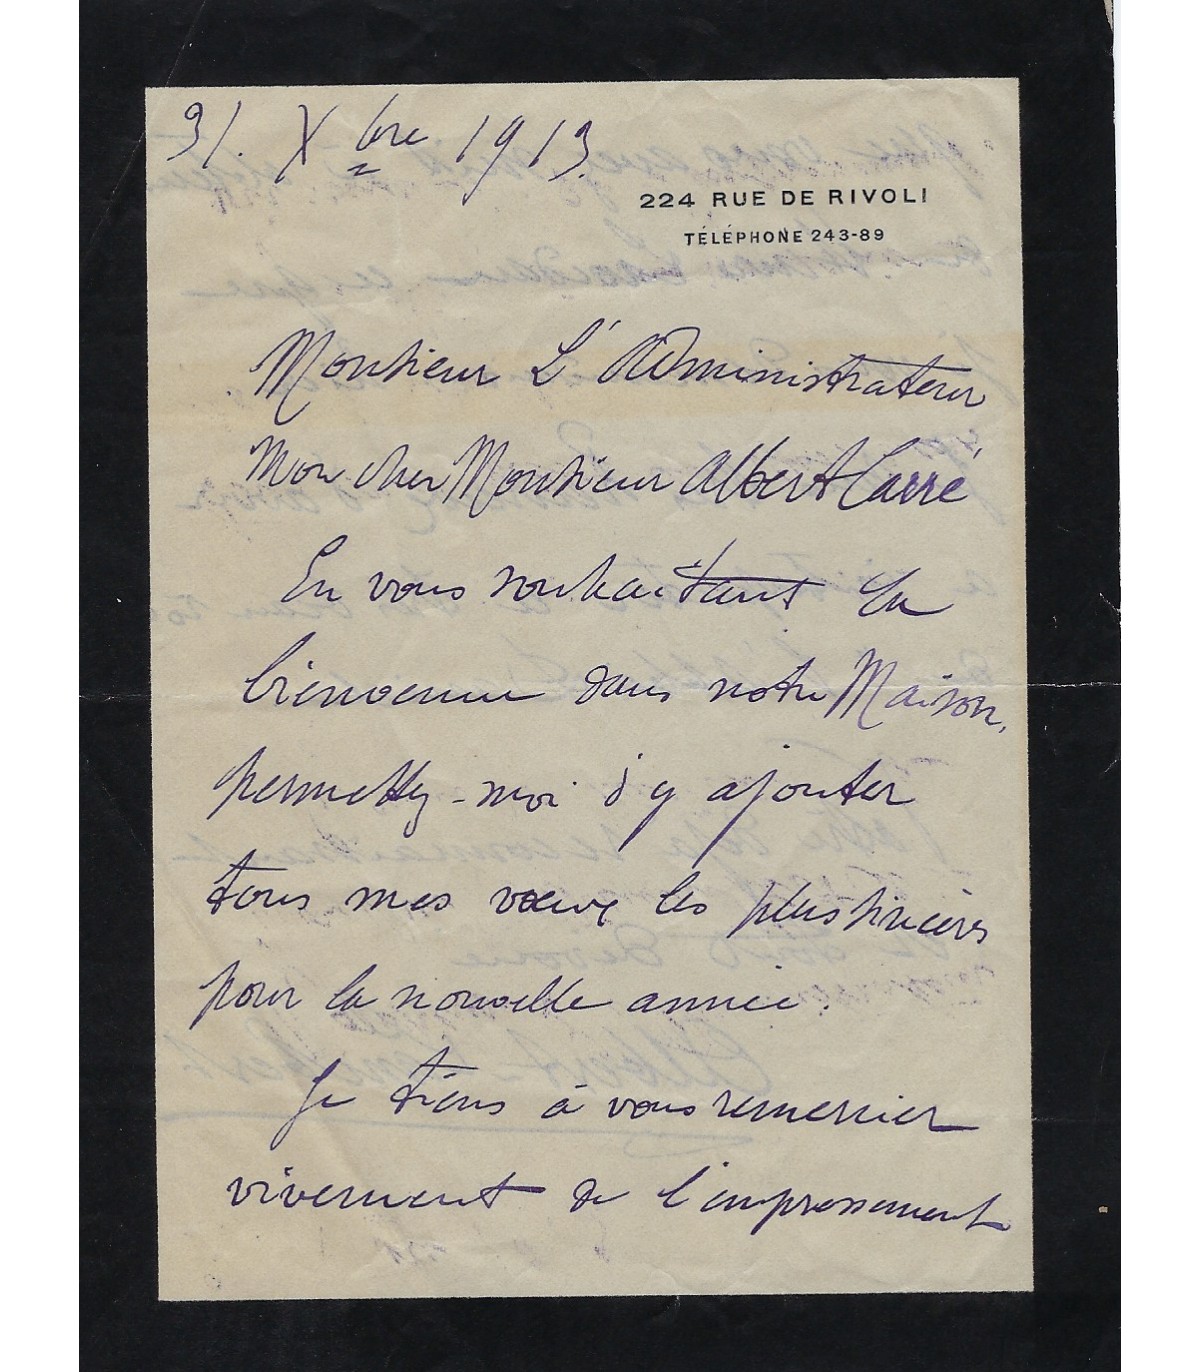 31. Xbre 1913.
224 RUE DE RIVOLI
TÉLÉPHONE 243-89
Monsieur L'Administrateur
Mon cher Monsieur Albert Carré
En vous souhaitant la
bienvenue dans notre Maison,
permettez-moi d'y ajouter
tous mes vœux les plus sincères
pour la nouvelle année.
Je tiens à vous remercier
vivement de l'empressement